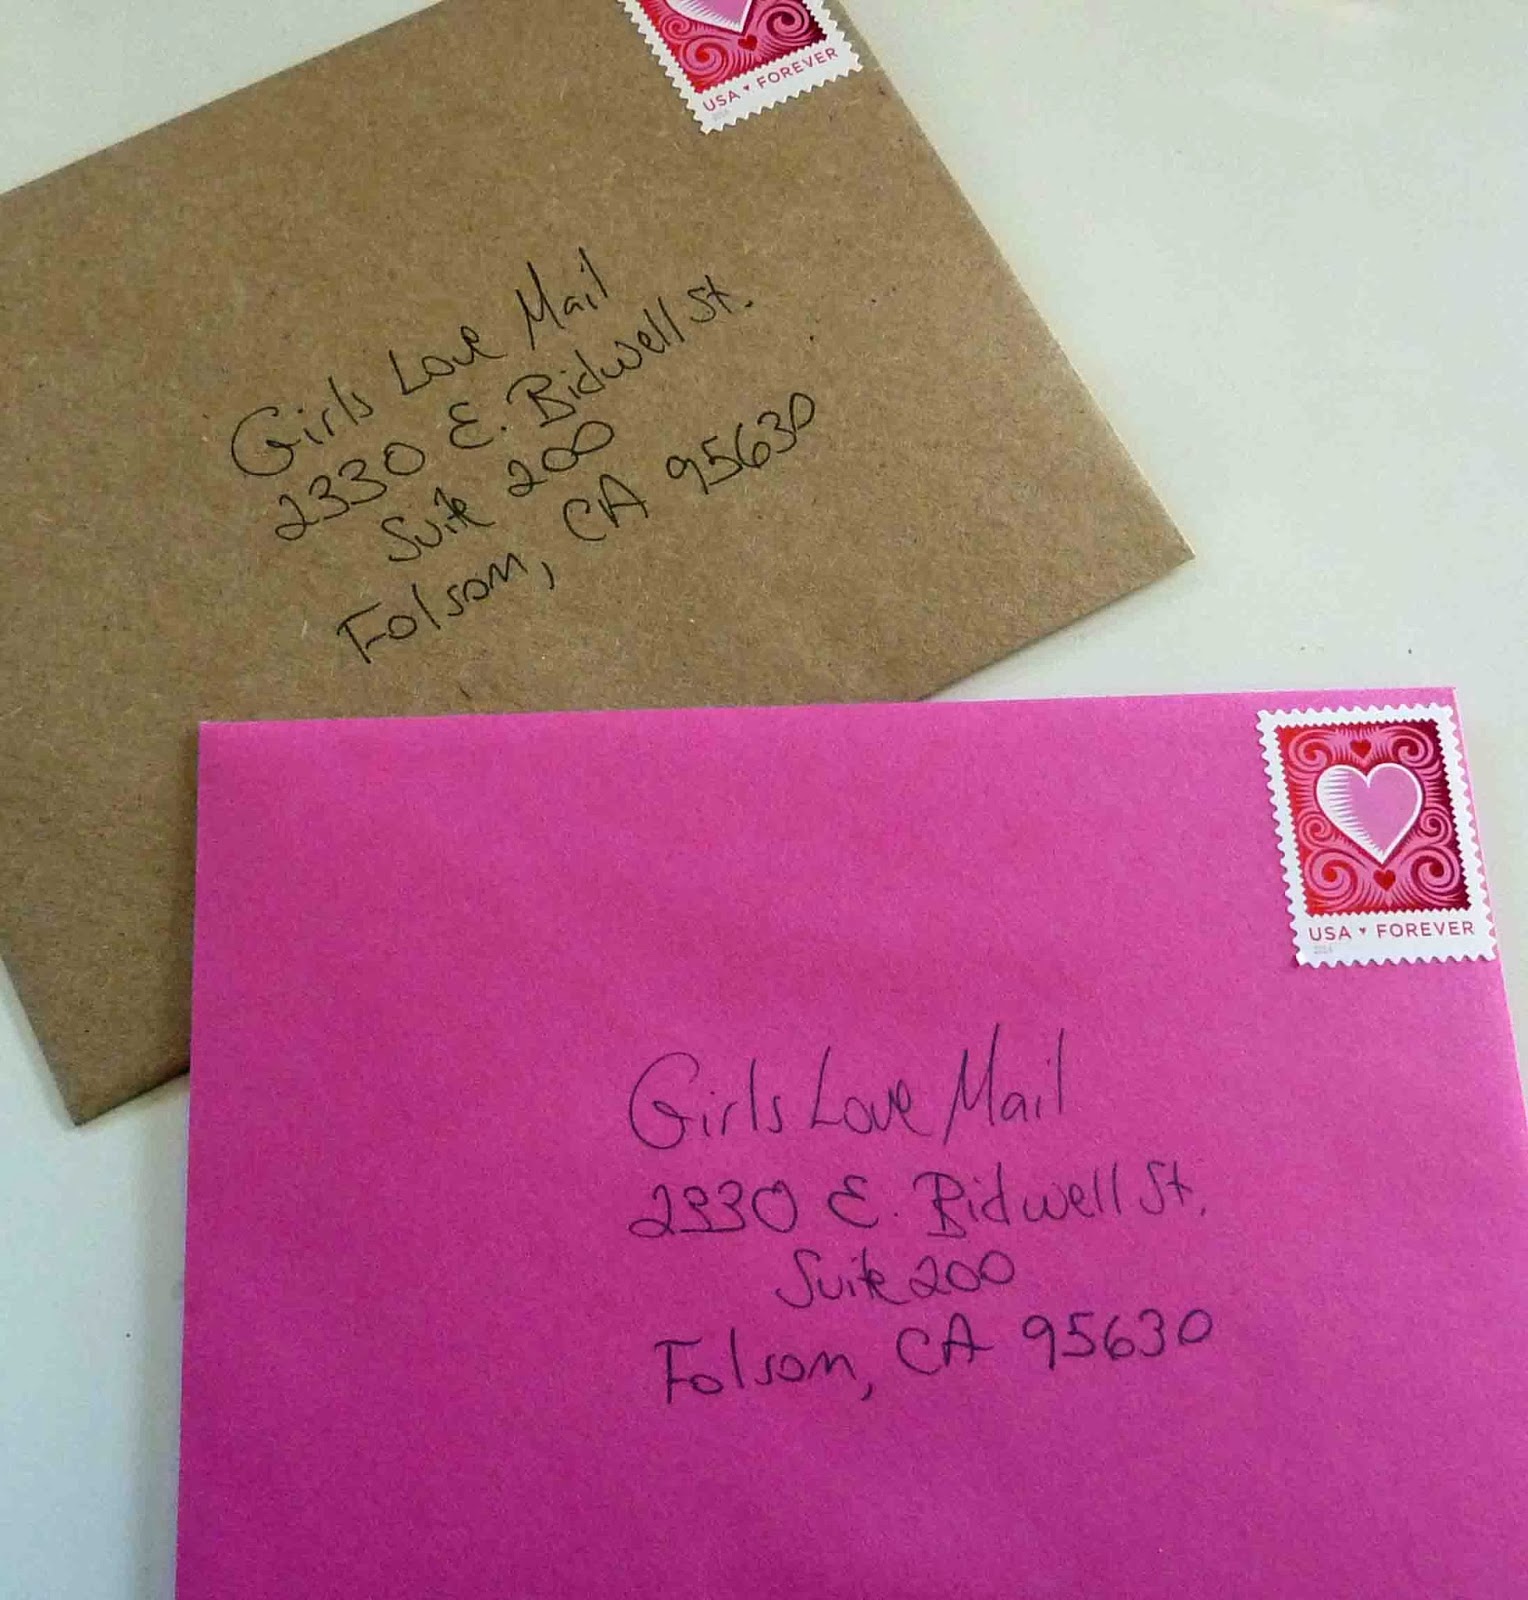 USA ♥ FOREVER
Girls Love Mail
2330 E. Bidwell St.
Suite 200
Folsom, CA 95630
USA ♥ FOREVER
Girls Love Mail
2330 E. Bidwell St.
Suite 200
Folsom, CA 95630